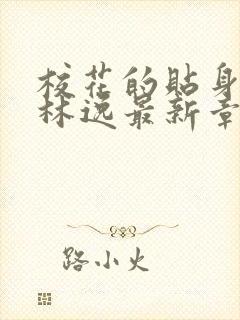 校花的贴身
林逸最新章
路小火